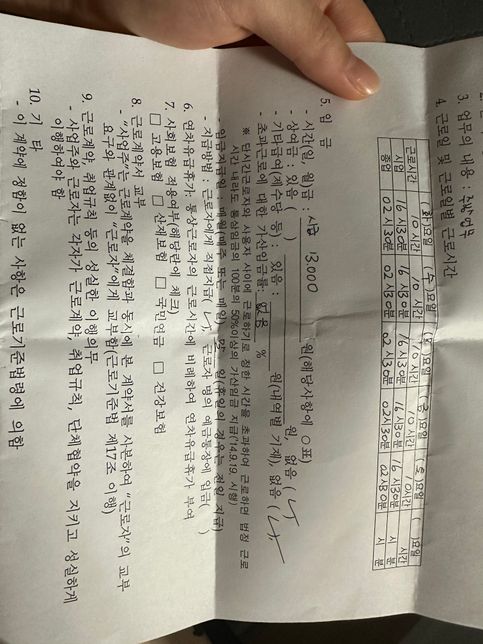 3. 업무의 내용 : 주방업무
4. 근로일 및 근로일별 근로시간
(화)요일 (수)요일 (목)요일 (금)요일 (토)요일 ( )요일
근로시간 10시간 10시간 10시간 10시간 10시간 시간
시업 16시30분 16시30분 16시30분 16시30분 16시30분 시 분
종업 02시30분 02시30분 02시30분 02시30분 02시30분 시 분
5. 임 금
- 시간(일, 월)급 : 시급 13,000 원(해당사항에 ○표)
- 상여금 : 있음 ( ) 원, 없음 ( ✓ )
- 기타급여(제수당 등) : 있음 : 원(내역별 기재), 없음 ( ✓ )
- 초과근로에 대한 가산임금률: 없음 %
※ 단시간근로자와 사용자 사이에 근로하기로 정한 시간을 초과하여 근로하면 법정 근로
시간 내라도 통상임금의 100분의 50%이상의 가산임금 지급('14.9.19. 시행)
- 임금지급일 : 매월(매주 또는 매일) 일(휴일의 경우는 전일 지급)
- 지급방법 : 근로자에게 직접지급( ✓ ), 근로자 명의 예금통장에 입금( )
6. 연차유급휴가: 통상근로자의 근로시간에 비례하여 연차유급휴가 부여
7. 사회보험 적용여부(해당란에 체크)
□ 고용보험 □ 산재보험 □ 국민연금 □ 건강보험
8. 근로계약서 교부
- "사업주"는 근로계약을 체결함과 동시에 본 계약서를 사본하여 "근로자"의 교부
요구와 관계없이 "근로자"에게 교부함(근로기준법 제17조 이행)
9. 근로계약, 취업규칙 등의 성실한 이행의무
- 사업주와 근로자는 각자가 근로계약, 취업규칙, 단체협약을 지키고 성실하게
이행하여야 함
10. 기 타
- 이 계약에 정함이 없는 사항은 근로기준법령에 의함